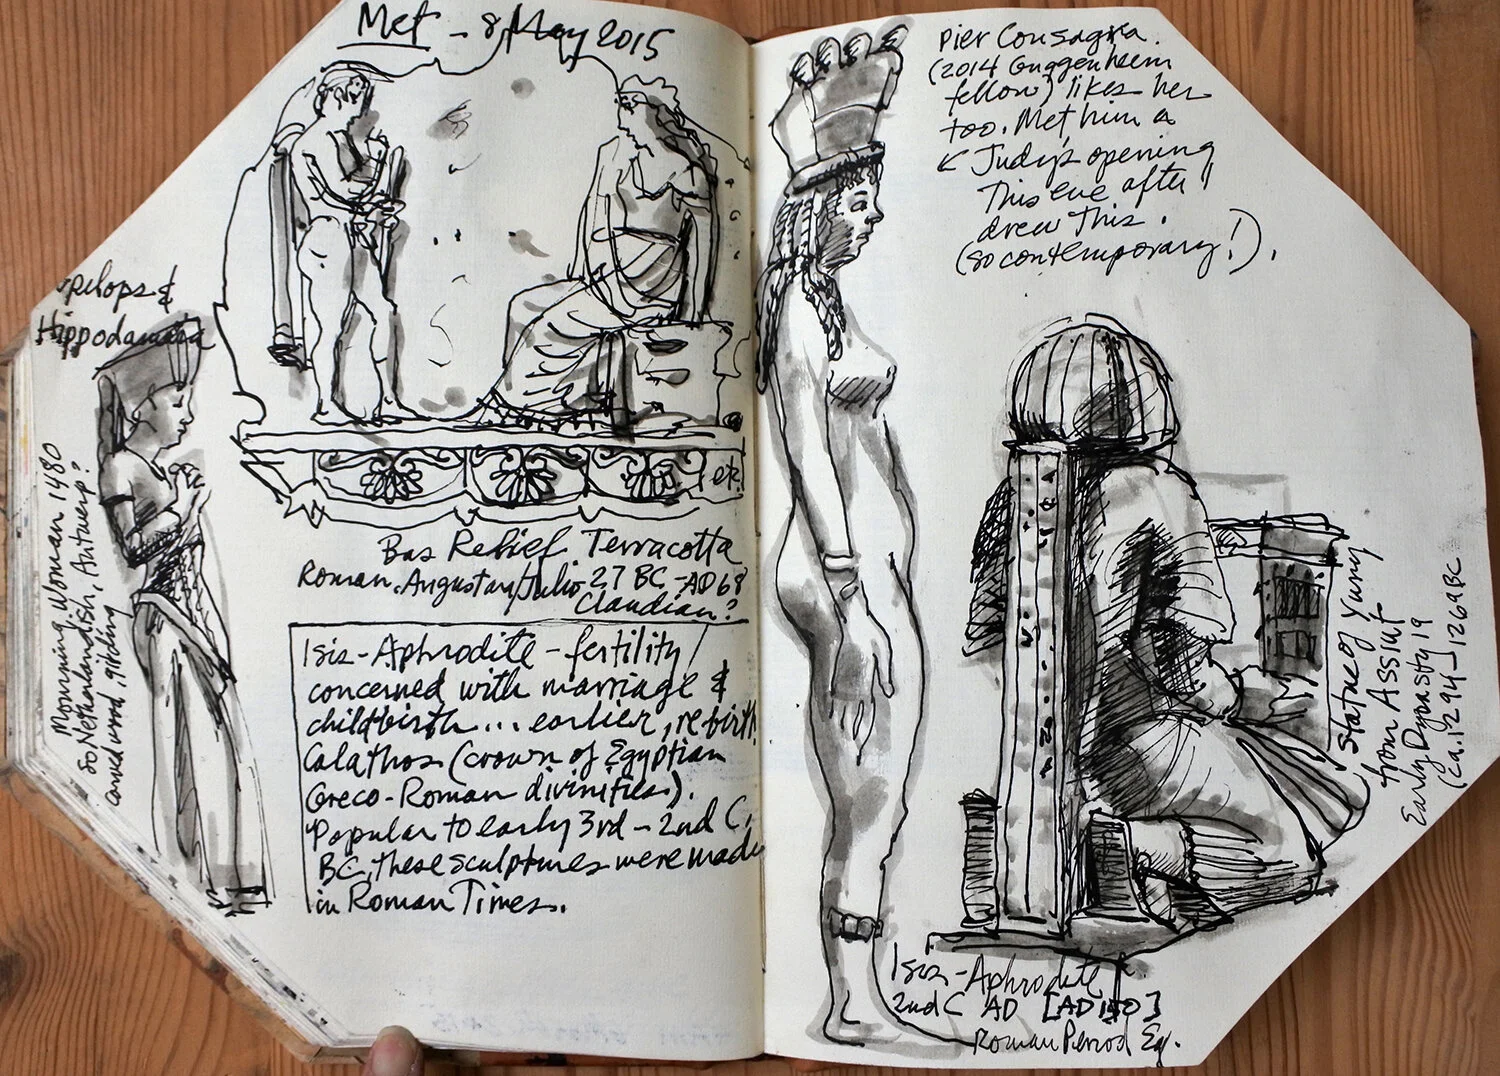 Met - 8 May 2015
pelops &
Hippodamaia
Mourning Woman 1480
So Netherlandish, Antwerp?
carved wood, gilding
etc
Bas Relief Terracotta
Roman, Augustan/Julio 27 BC - AD 68
Claudian?
Isis-Aphrodite - fertility
concerned with marriage &
childbirth... earlier, rebirth
Calathos (crown of Egyptian
Greco-Roman divinities).
Popular to early 3rd - 2nd C.
BC, these sculptures were made
in Roman Times.
Pier Consagra.
(2014 Guggenheim
fellow) likes her
too. Met him a
Judy's opening
this eve after I
drew this.
(so contemporary!).
Statue of Yuny
from Assiut
Early Dynasty 19
(ca. 1294-1269 BC
Isis-Aphrodite
2nd C AD [AD 150]
Roman Period Eg.